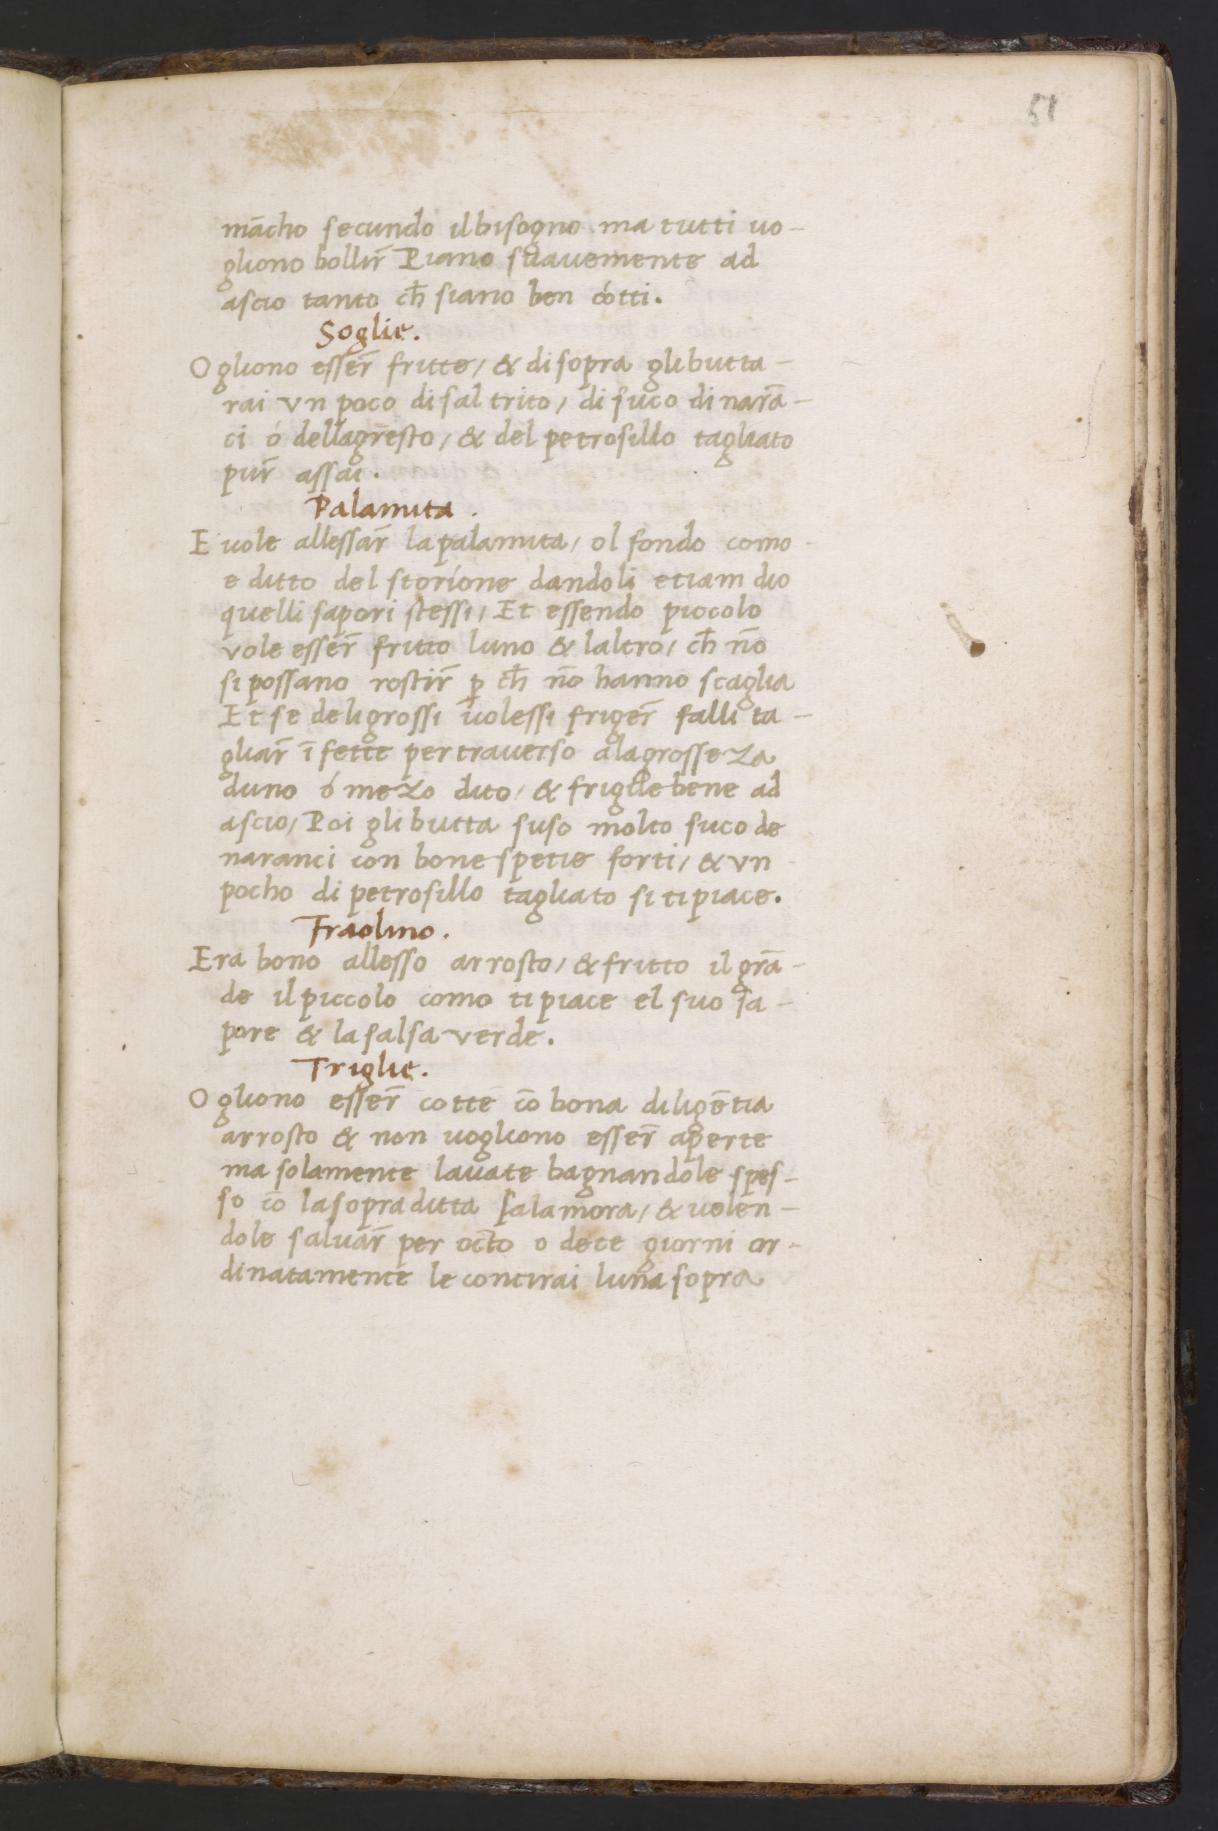 51
mācho secundo il bisogno ma tutti uo-
gliono bollir̄ Piano suauemente ad
ascio tanto ch̄ siano ben cótti.
Soglie.
O gliono esser̄ fritte / & di sopra gli butta-
rai vn poco di sal trito / di suco di narā-
ci ó dellagresto / & del petrosillo tagliato
pur̄ assai.
Palamita.
E uole allessar̄ la palamita / ol fondo como
e ditto del storione dandoli etiam dio
quelli sapori stessi / Et essendo piccolo
vole esser̄ fritto luno & laltro / ch̄ nō
si possano rostir̄ ꝑ ch̄ nō hanno scaglia
Et se de li grossi uolessi friger̄ falli ta-
gliar̄ ī fette per trauerso ala grosseza
duno ó mezo dito / & frigile bene ad
ascio / Poi gli butta suso molto suco de
naranci con bone spetie forti / & vn
pocho di petrosillo tagliato si ti piace.
Fraolino.
Era bono allesso arrosto / & fritto il grā-
de il piccolo como ti piace el suo sa-
pore & la salsa verde.
Triglie.
O gliono esser̄ cotte cō bona diligētia
arrosto & non uogliono esser̄ aperte
ma solamente lauate bagnandole spes-
so cō la sopra ditta salamora / & uolen-
dole saluar̄ per octo o dece giorni or-
dinatamente le concirai luna sopra